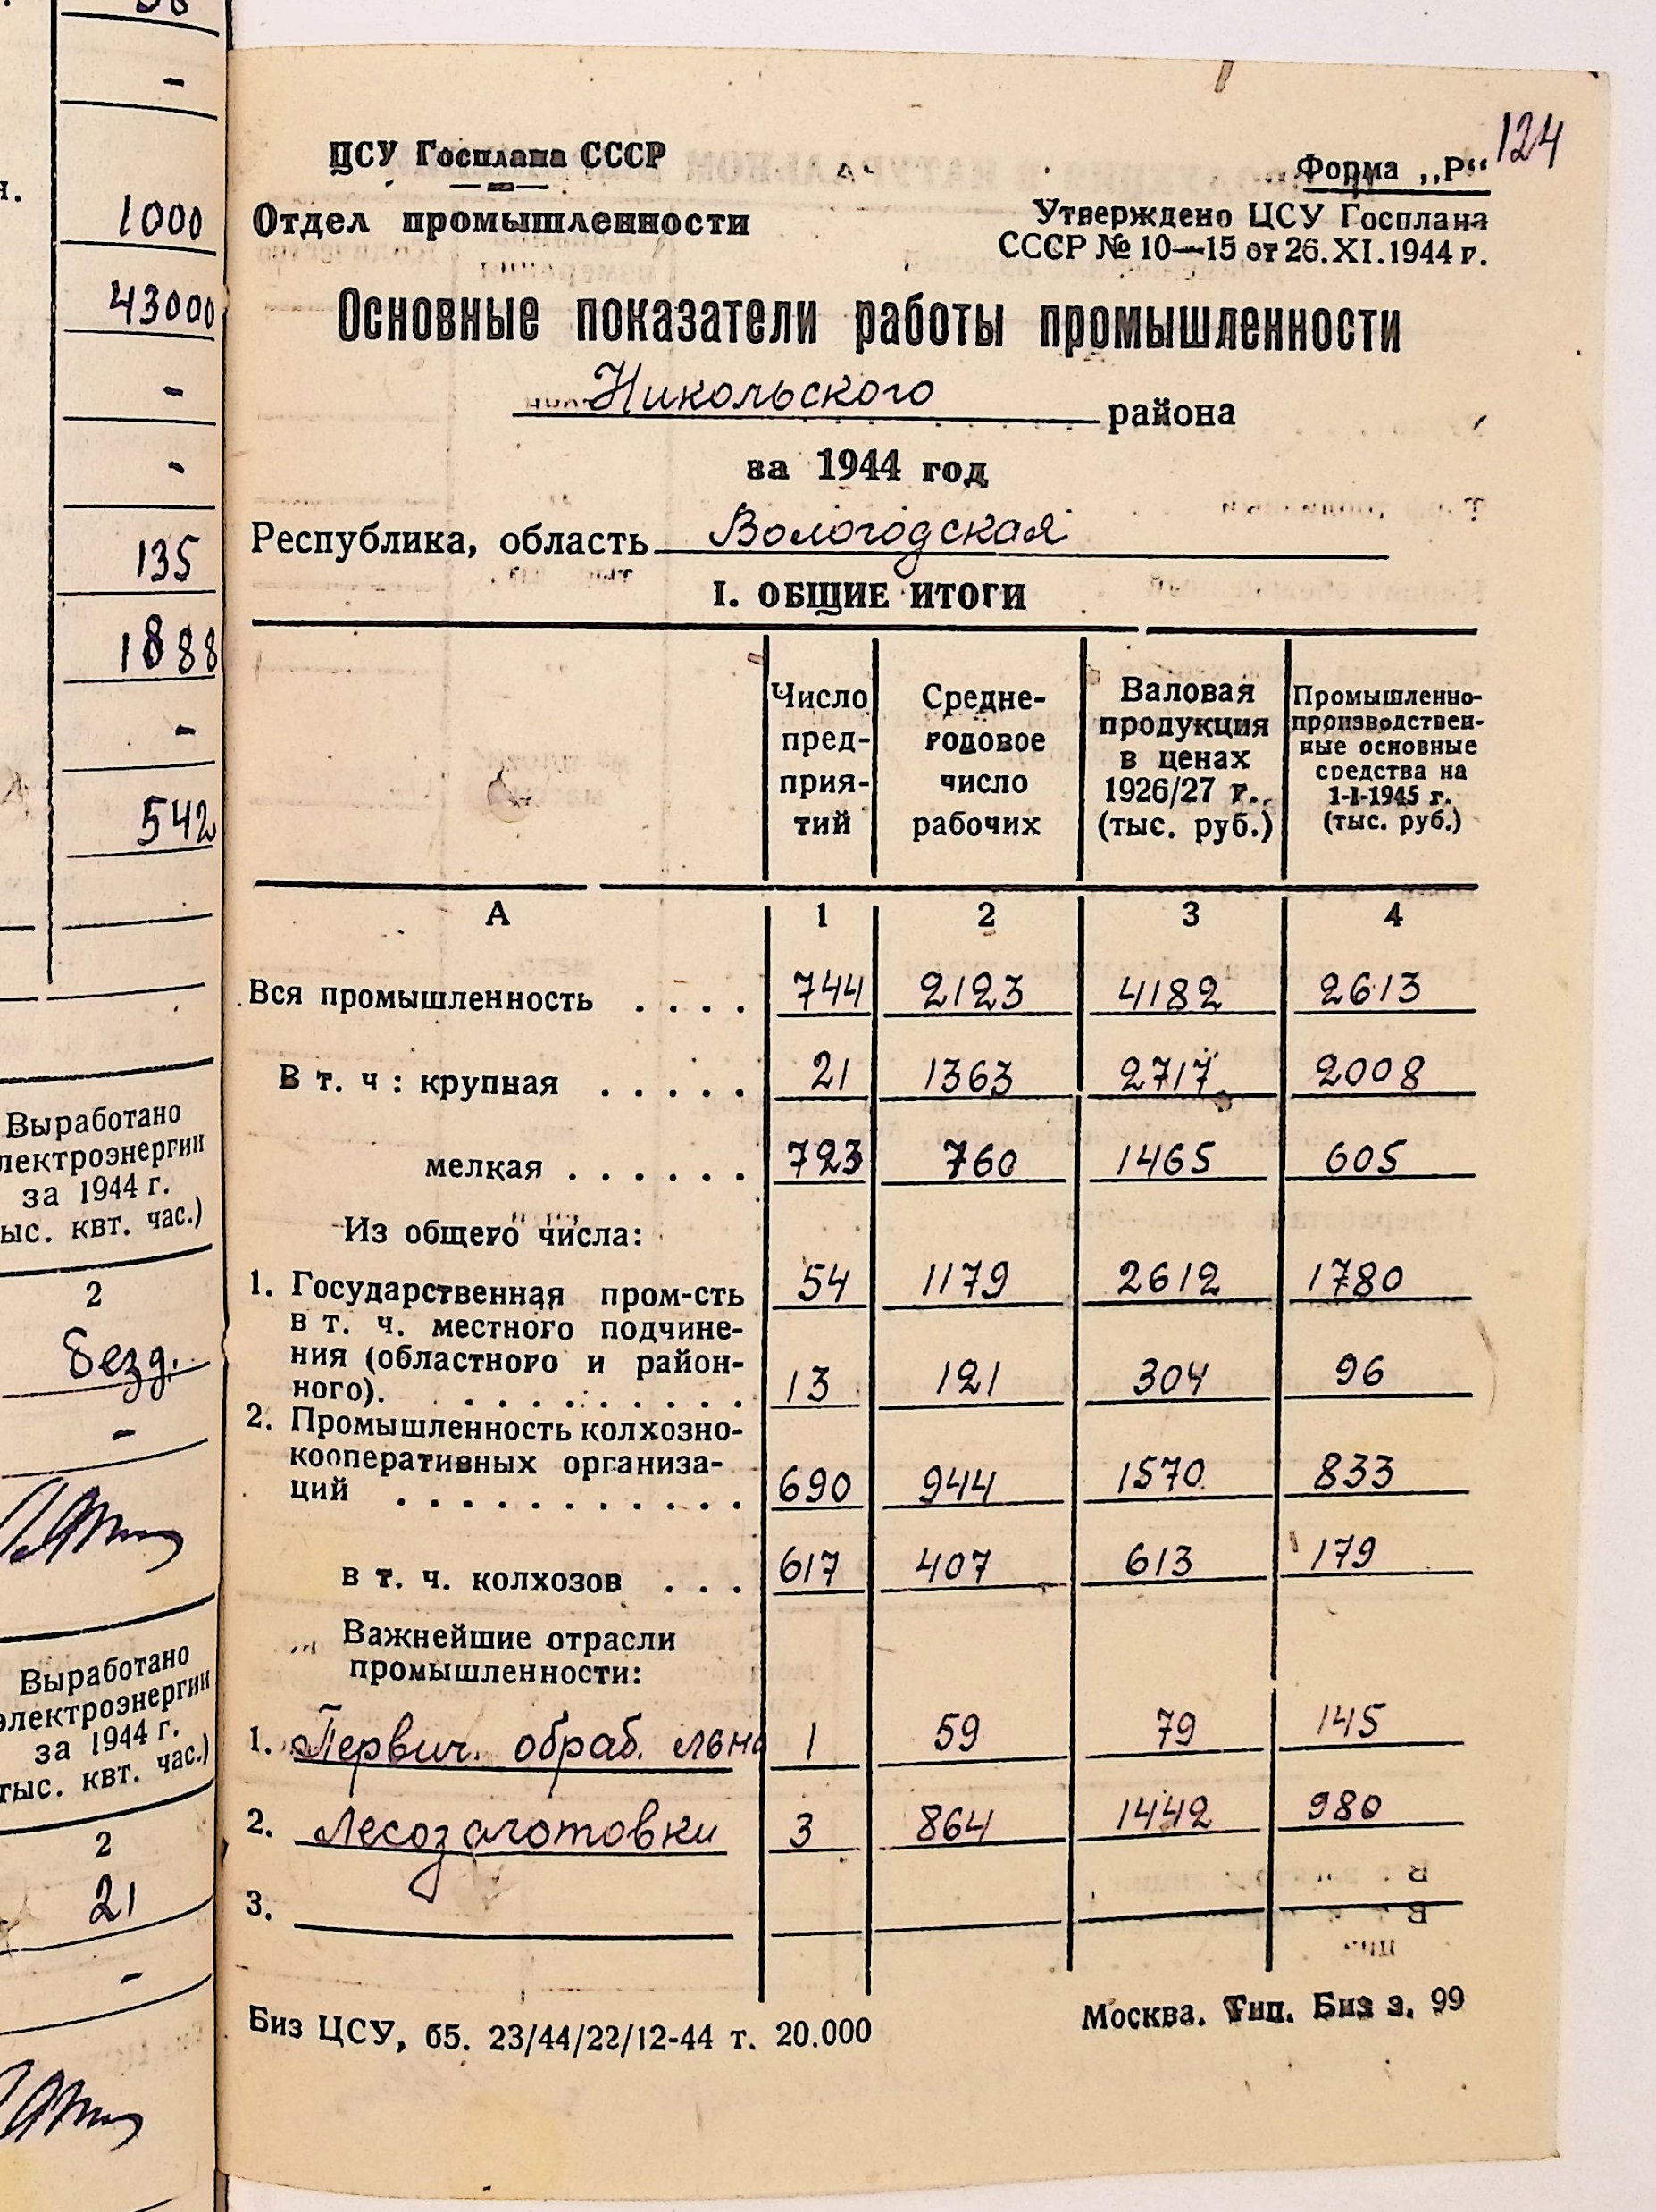 124
ЦСУ Госплана СССР
Форма „Р“
Отдел промышленности
Утверждено ЦСУ Госплана
СССР № 10—15 от 26.XI.1944 г.
Основные показатели работы промышленности
Никольского района
за 1944 год
Республика, область Вологодская
I. ОБЩИЕ ИТОГИ
Число пред-прия-тий
Средне-годовое число рабочих
Валовая продукция в ценах 1926/27 г. (тыс. руб.)
Промышленно-производствен-ные основные средства на 1-I-1945 г. (тыс. руб.)
А 1 2 3 4
Вся промышленность . . . . 744 2123 4182 2613
В т. ч : крупная . . . . . 21 1363 2717 2008
мелкая . . . . . . 723 760 1465 605
Из общего числа:
1. Государственная пром-сть 54 1179 2612 1780
в т. ч. местного подчине-
ния (областного и район-
ного). . . . . . . . . . . 13 121 304 96
2. Промышленность колхозно-
кооперативных организа-
ций . . . . . . . . . . . . 690 944 1570 833
в т. ч. колхозов . . . 617 407 613 179
Важнейшие отрасли
промышленности:
1. Первич. обраб. льна 1 59 79 145
2. Лесозаготовки 3 864 1442 980
3.
Биз ЦСУ, б5. 23/44/22/12-44 т. 20.000
Москва. Тип. Биз з. 99
-
1000
43000
-
-
135
1888
-
542
Выработано
лектроэнергии
за 1944 г.
ыс. квт. час.)
2
безд.
-
Выработано
электроэнергии
за 1944 г.
тыс. квт. час.)
2
21
-